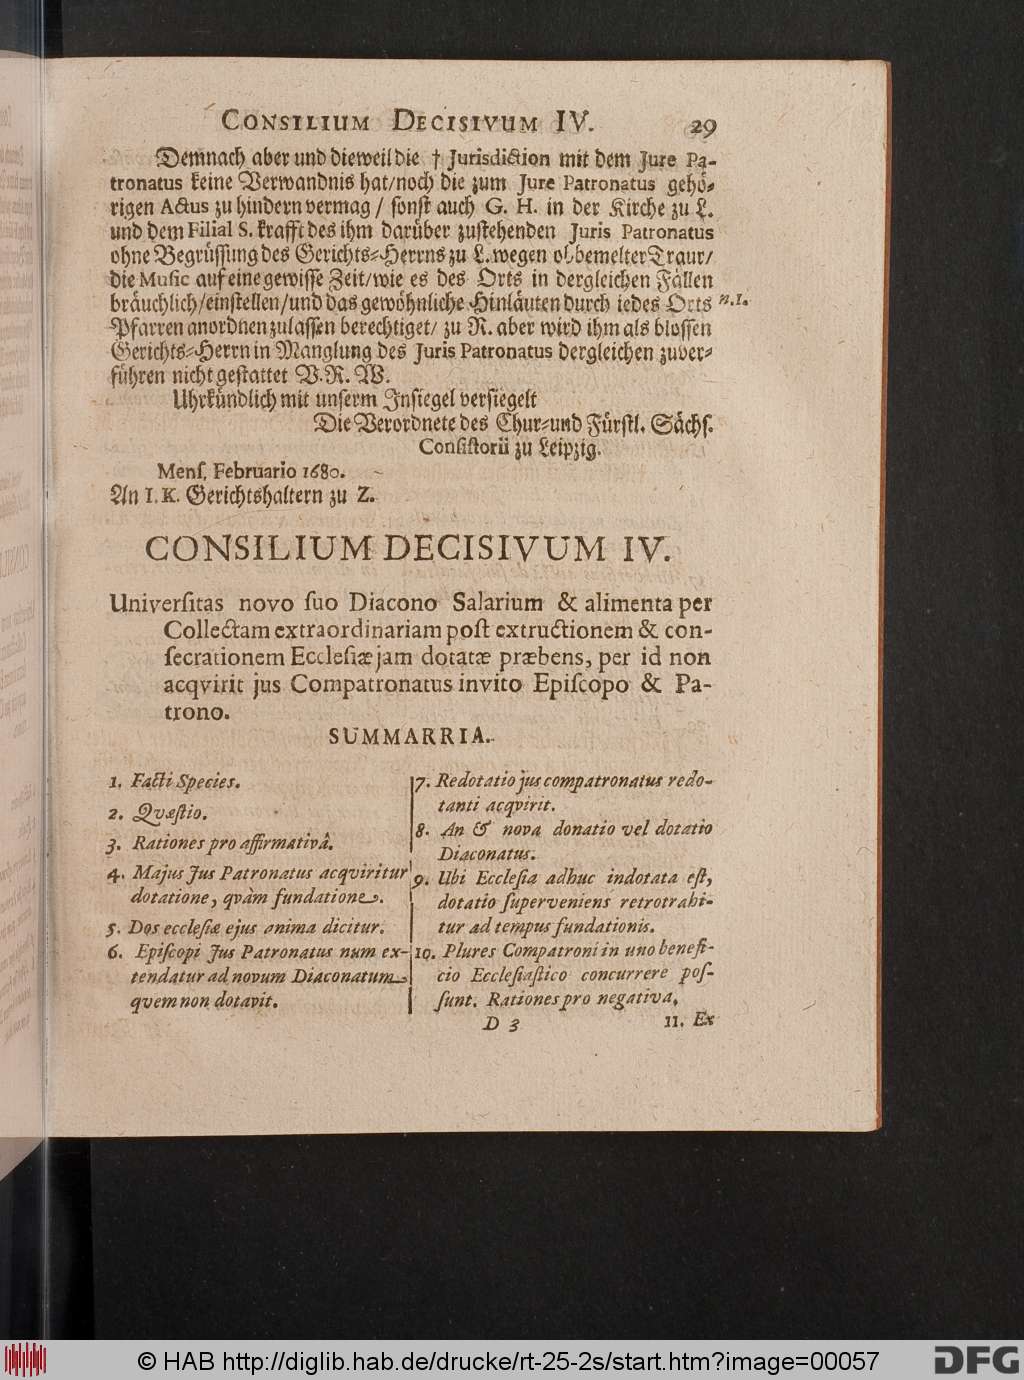 CONSILIUM DECISIVUM IV. 29
Demnach aber und dieweil die † Jurisdiction mit dem Jure Pa-
tronatus keine Verwandnis hat/noch die zum Jure Patronatus gehö-
rigen Actus zu hindern vermag / sonst auch G. H. in der Kirche zu L.
und dem Filial S. krafft des ihm darüber zustehenden Juris Patronatus
ohne Begrüssung des Gerichts-Herrns zu L. wegen obbemelter Traur/
die Music auf eine gewisse Zeit/wie es des Orts in dergleichen Fällen
bräuchlich/einstellen/und das gewöhnliche Hinläuten durch iedes Orts n.1.
Pfarren anordnen zulassen berechtiget/ zu R. aber wird ihm als blossen
Gerichts-Herrn in Manglung des Juris Patronatus dergleichen zuver-
führen nicht gestattet V. R. W.
Uhrkündlich mit unserm Insiegel versiegelt
Die Verordnete des Chur-und Fürstl. Sächs.
Consistorii zu Leipzig.
Mens. Februario 1680.
An I. K. Gerichtshaltern zu Z.
CONSILIUM DECISIVUM IV.
Universitas novo suo Diacono Salarium & alimenta per
Collectam extraordinariam post extructionem & con-
secrationem Ecclesiæ jam dotatæ præbens, per id non
acqvirit jus Compatronatus invito Episcopo & Pa-
trono.
SUMMARRIA.
1. Facti Species.
2. Qvæstio.
3. Rationes pro affirmativâ.
4. Majus Jus Patronatus acqviritur
dotatione, qvàm fundatione.
5. Dos ecclesiæ ejus anima dicitur.
6. Episcopi Jus Patronatus num ex-
tendatur ad novum Diaconatum
qvem non dotavit.
7. Redotatio jus compatronatus redo-
tanti acqvirit.
8. An & nova donatio vel dotatio
Diaconatus.
9. Ubi Ecclesia adhuc indotata est,
dotatio superveniens retrotrahi-
tur ad tempus fundationis.
10. Plures Compatroni in uno benefi-
cio Ecclesiastico concurrere pos-
sunt. Rationes pro negativa.
D 3 11. Ex
© HAB http://diglib.hab.de/drucke/rt-25-2s/start.htm?image=00057
DFG